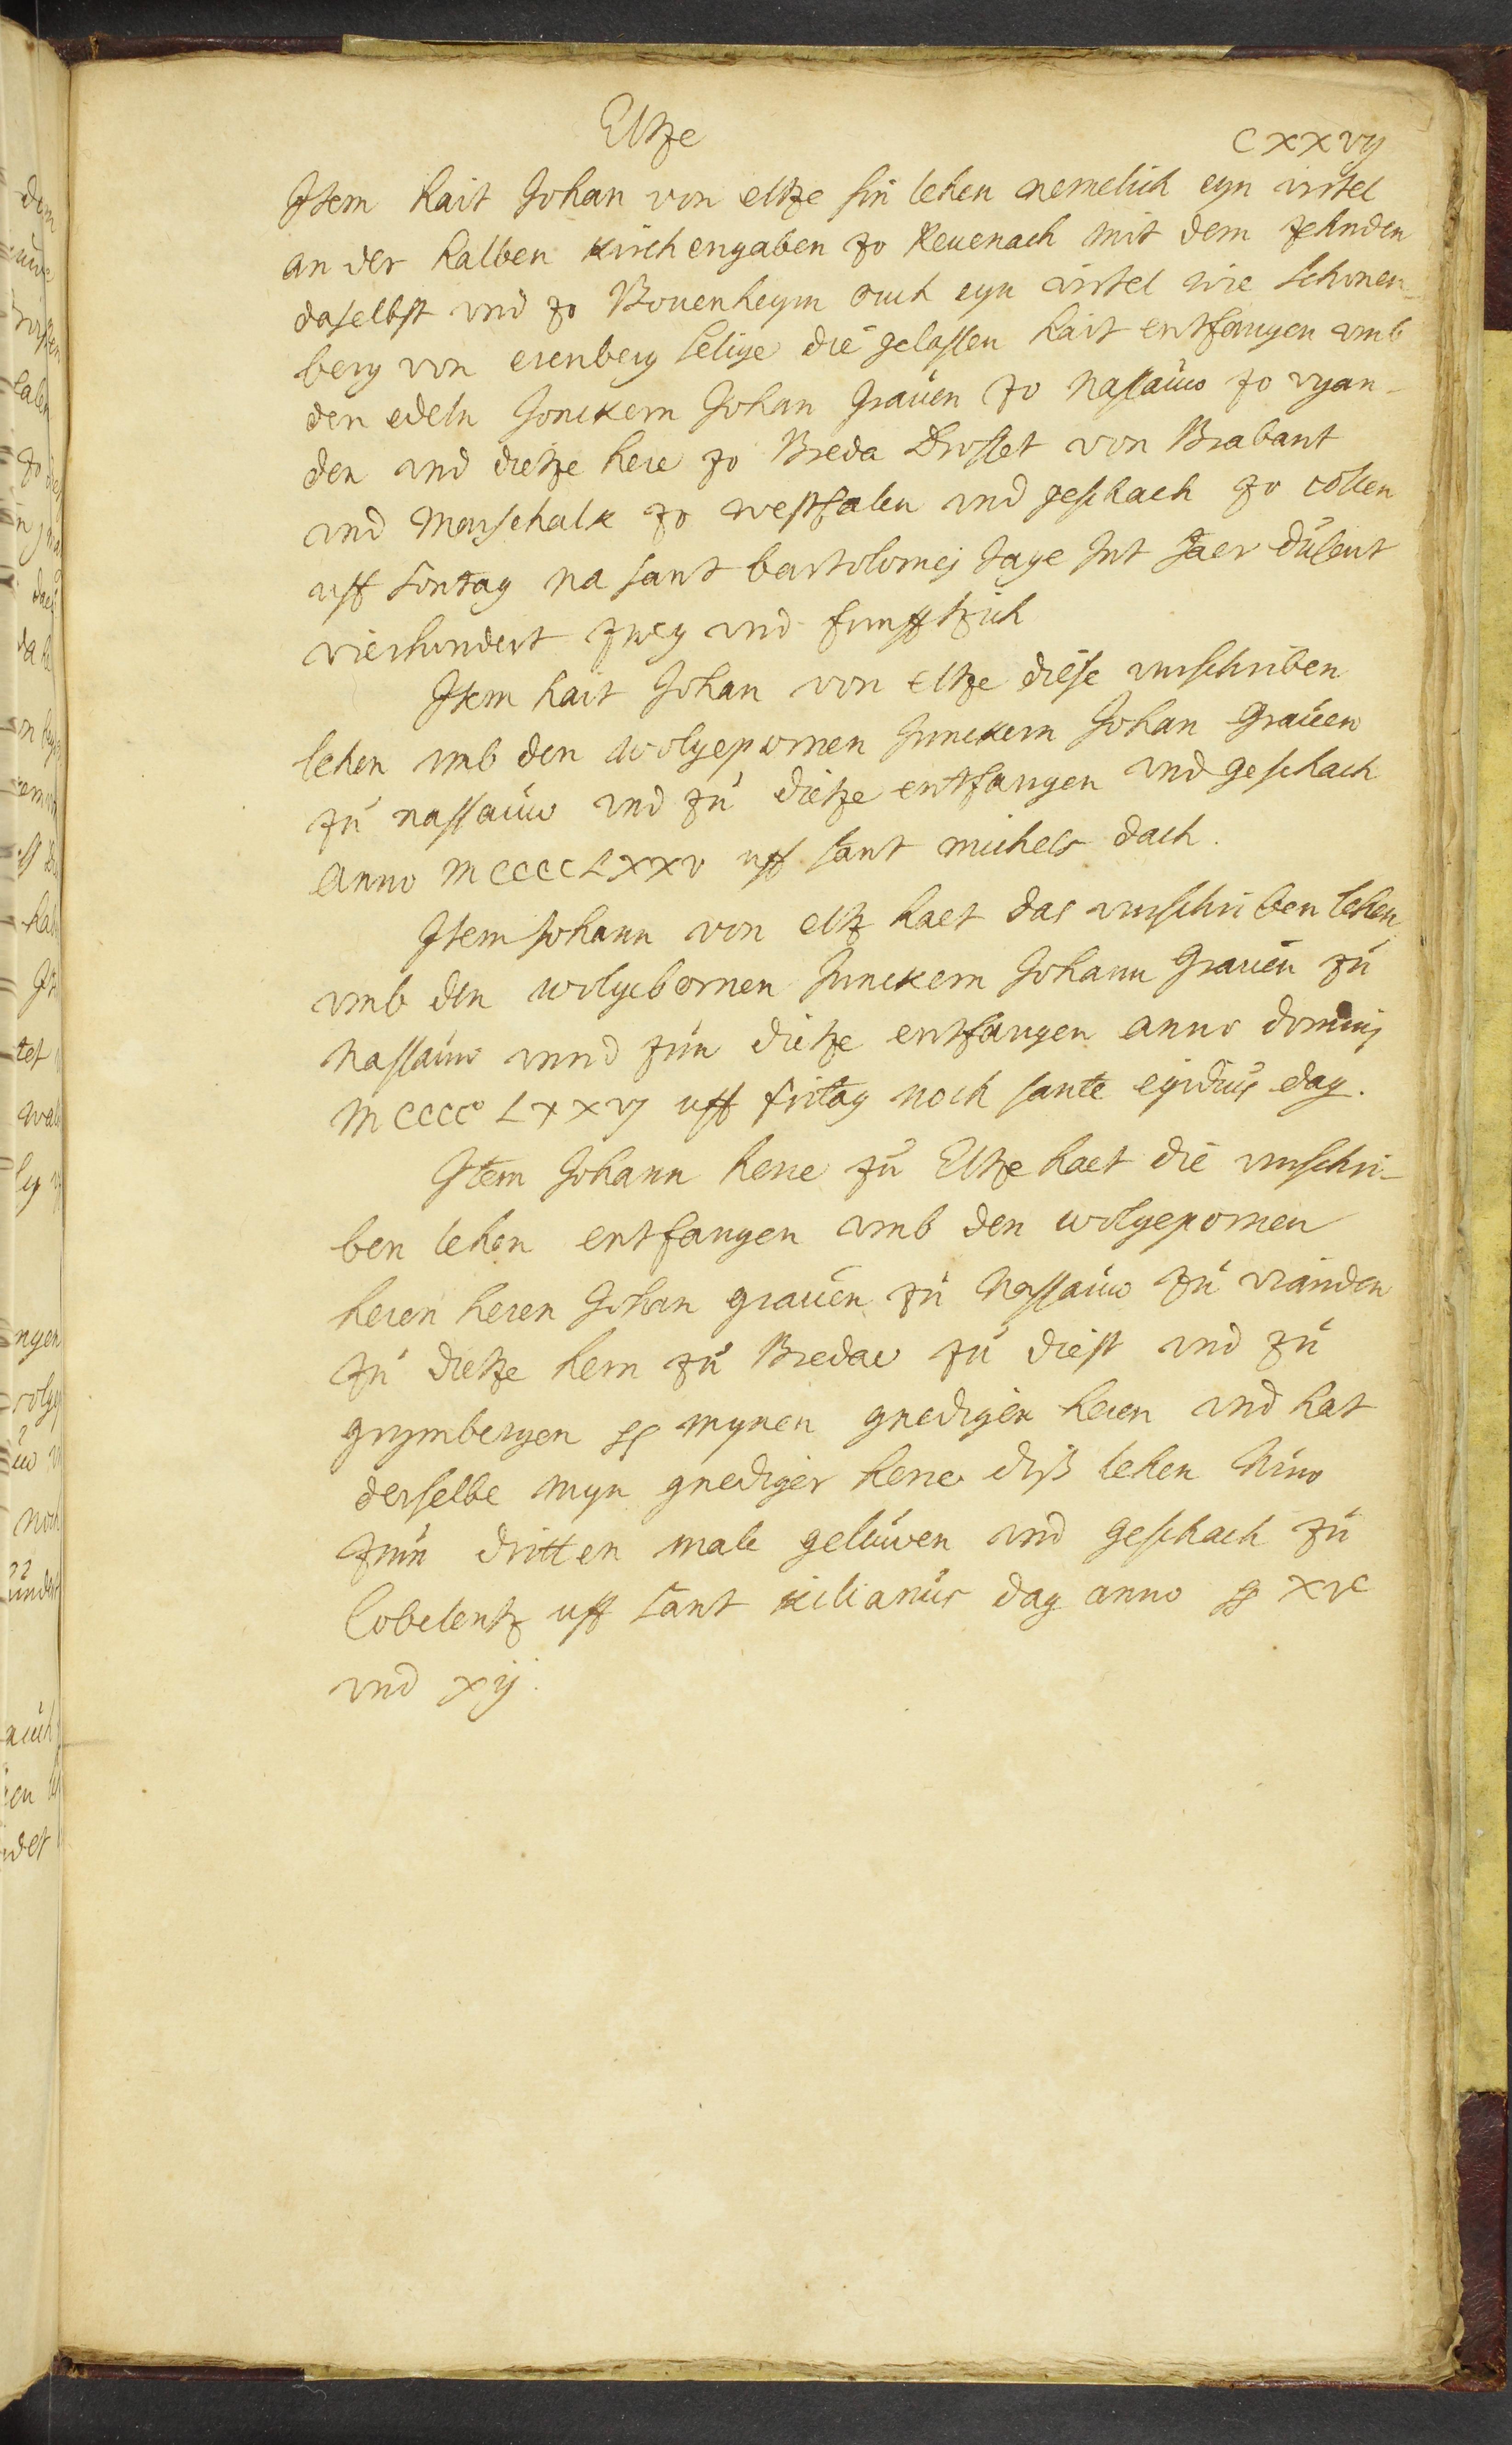 Eltze
CXXVIJ
Item hait Johan von eltze sin lehen nemelich eyn virtel
an der halben kirchengaben zo Keuenach mit dem zehnden
daselbst vnd zo Bouenheym ouch eyn virtel wie schonen-
berg von erenberg selige die gelassen hait entfangen vmb
den edeln Jonckern Johan Grauen zo nassauw zo vyan-
den vnd dietze here zo Breda Drosset von Brabant
vnd Marschalk zo westfalen vnd geschach zo collen
uff sontag na sant bartolomej tage Int Jaer dusent
vierhondert zwey vnd funfftzich
Item hait Johan von eltze diese vurschriben
lehen vmb den wolgepornen Junckern Johan Grauen
zu nassauw vnd zu dietze entfangen vnd geschach
Anno MCCCCLXXV uff sant michels dach.
Item Johann von eltz haet das vurschriben lehen
vmb den wolgebornen Junckern Johann Grauen zu
nassauw vnnd zun dietze entfangen anno dominj
MCCCC° LXXVJ uff fritag noch sante egidius dag.
Item Johann herre zu Eltze haet die vurschri-
ben lehen entfangen vmb den wolgepornen
heren heren Johan grauen zu Nassauw zu vianden
zu dietze hern zu Bredae zu diest vnd zu
grymbergen mynen gnedigen heren vnd hat
derselbe myn gnediger herre diß lehen Nuno
zum dritten male geluwen vnd geschach zu
Cobelentz uff sant kilianus dag anno XVC
vnd xij.